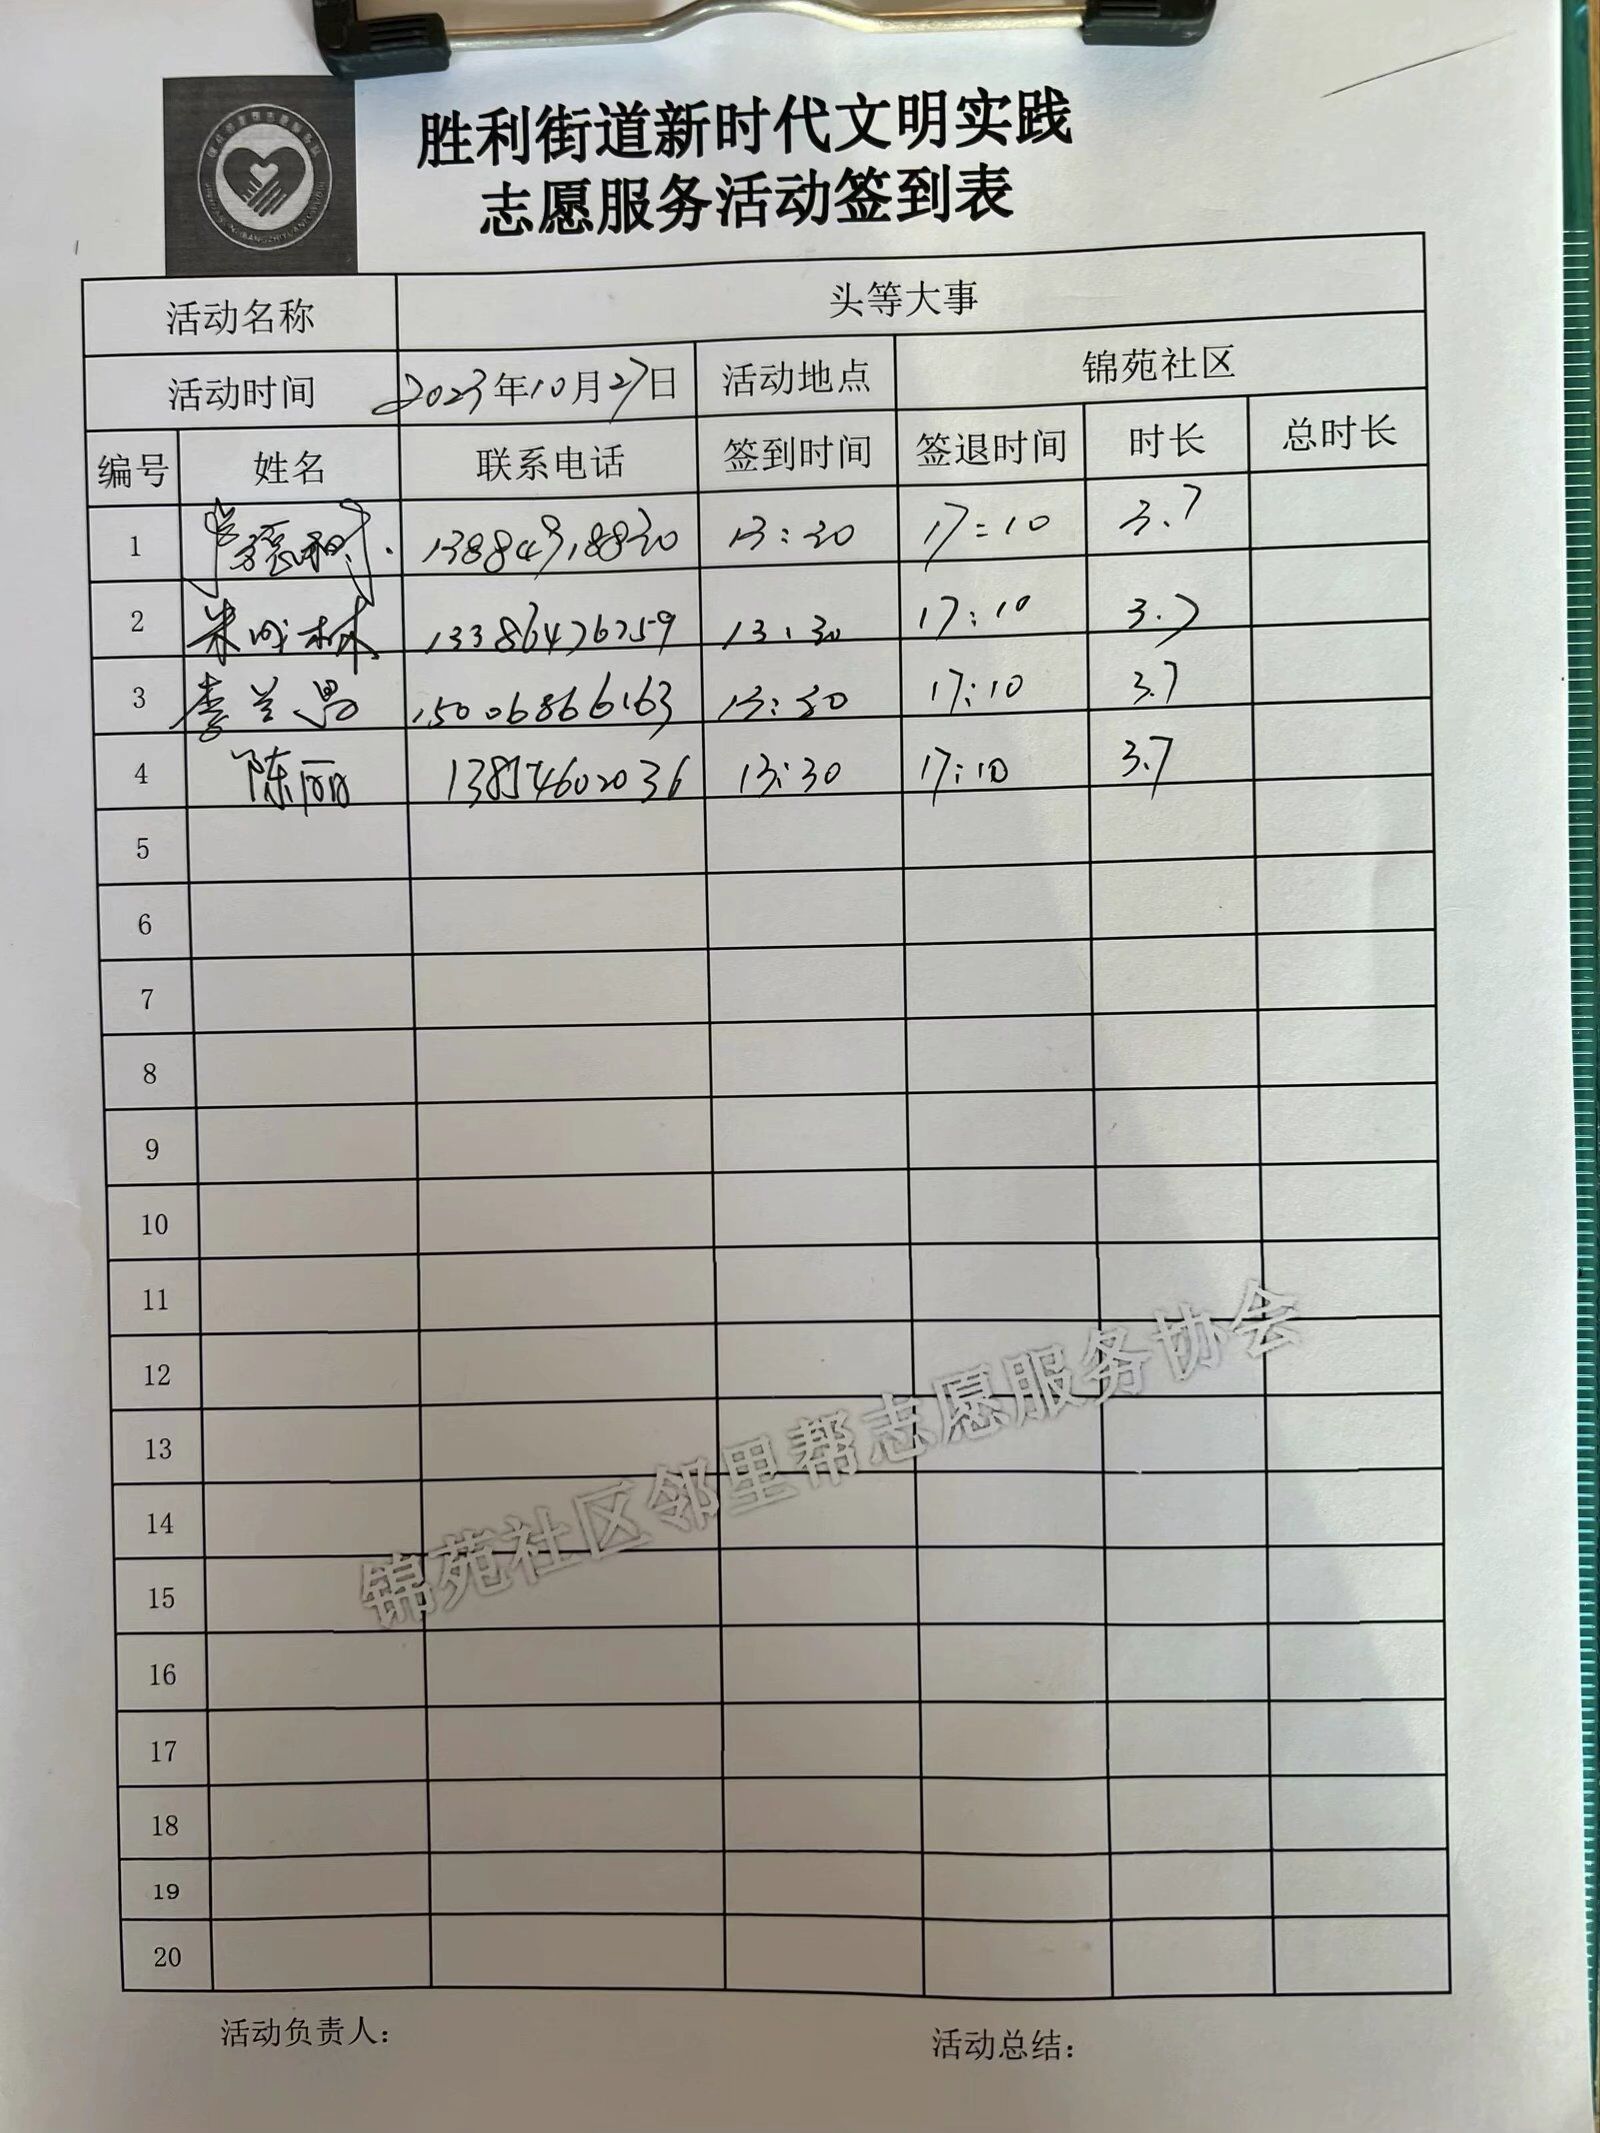 胜利街道新时代文明实践
志愿服务活动签到表
活动名称 头等大事
活动时间 2023年10月27日 活动地点 锦苑社区
编号 姓名 联系电话 签到时间 签退时间 时长 总时长
1 13:30 17:10 3.7
2 13386476259 13:30 17:10 3.7
3 李兰 15006866163 13:30 17:10 3.7
4 陈丽 13854602036 13:30 17:10 3.7
5
6
7
8
9
10
11
12
13
14
15
16
17
18
19
20
锦苑社区邻里帮志愿服务协会
活动负责人： 活动总结：